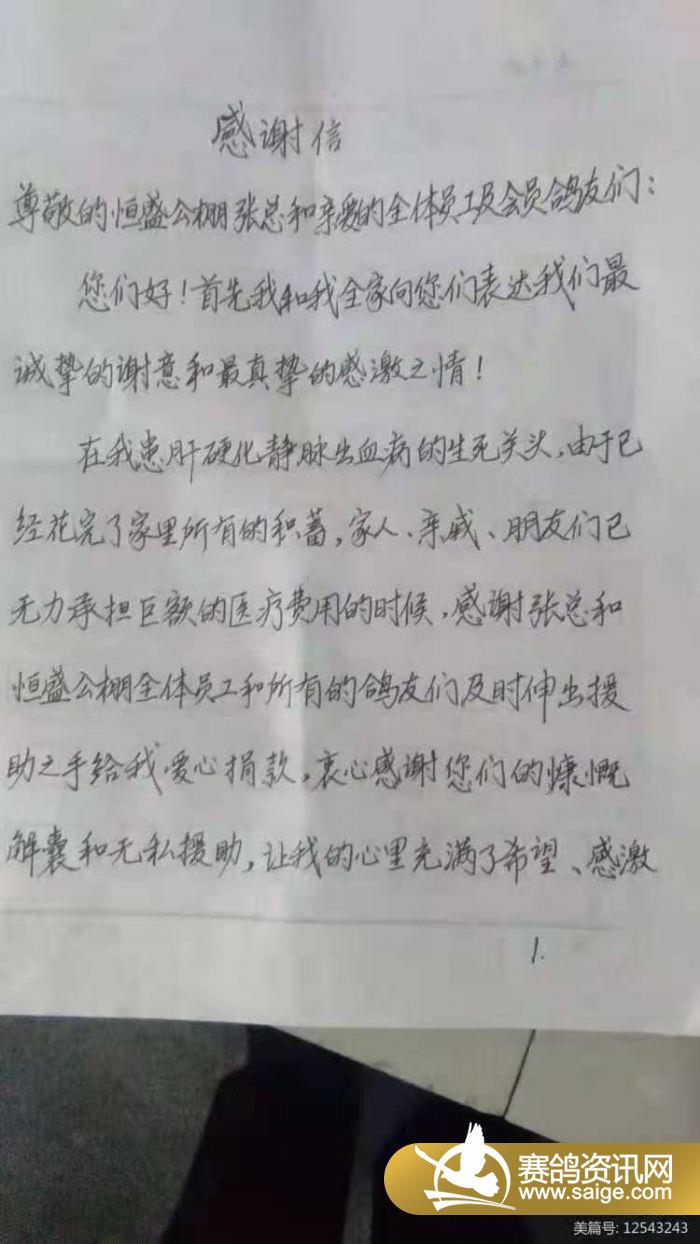 感谢信
尊敬的恒盛公棚张总和亲爱的全体员工及会员鸽友们：
您们好！首先我和我全家向您们表达我们最
诚挚的谢意和最真挚的感激之情！
在我患肝硬化静脉出血病的生死关头，由于已
经花完了家里所有的积蓄，家人、亲戚、朋友们已
无力承担巨额的医疗费用的时候，感谢张总和
恒盛公棚全体员工和所有的鸽友们及时伸出援
助之手给我爱心捐款，衷心感谢您们的慷慨
解囊和无私援助，让我的心里充满了希望、感激
1.
赛鸽资讯网
www.saige.com
美篇号: 12543243